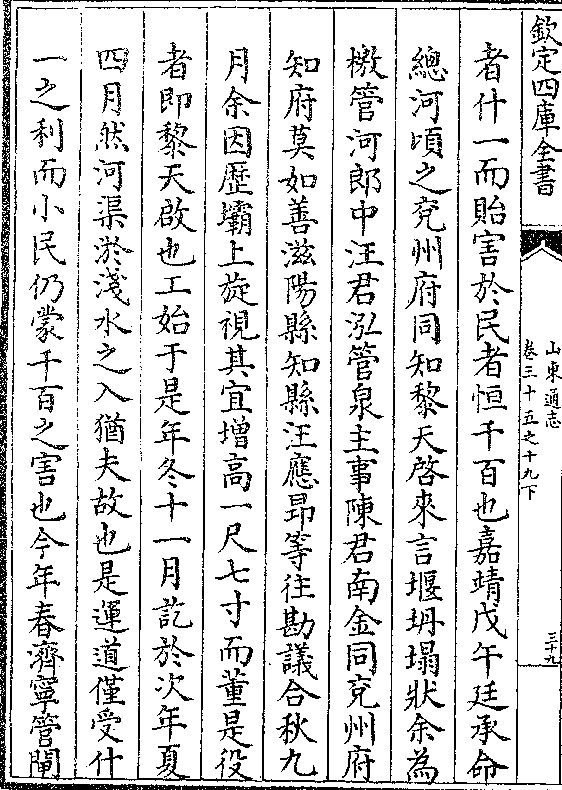 欽定四庫全書
山東通志
卷三十五之十九下
三十九
者什一而貽害於民者恒千百也嘉靖戊午廷承命
總河頃之兗州府同知黎天啓來言堰坍塌狀余為
檄管河郎中汪君泓管泉主事陳君南金同兗州府
知府莫如善滋陽縣知縣汪應昻等往勘議合秋九
月余因歴壩上旋視其宜增高一尺七寸而董是役
者即黎天啟也工始于是年冬十一月訖於次年夏
四月然河渠淤淺水之入猶夫故也是運道僅受什
一之利而小民仍蒙千百之害也今年春濟寧管閘